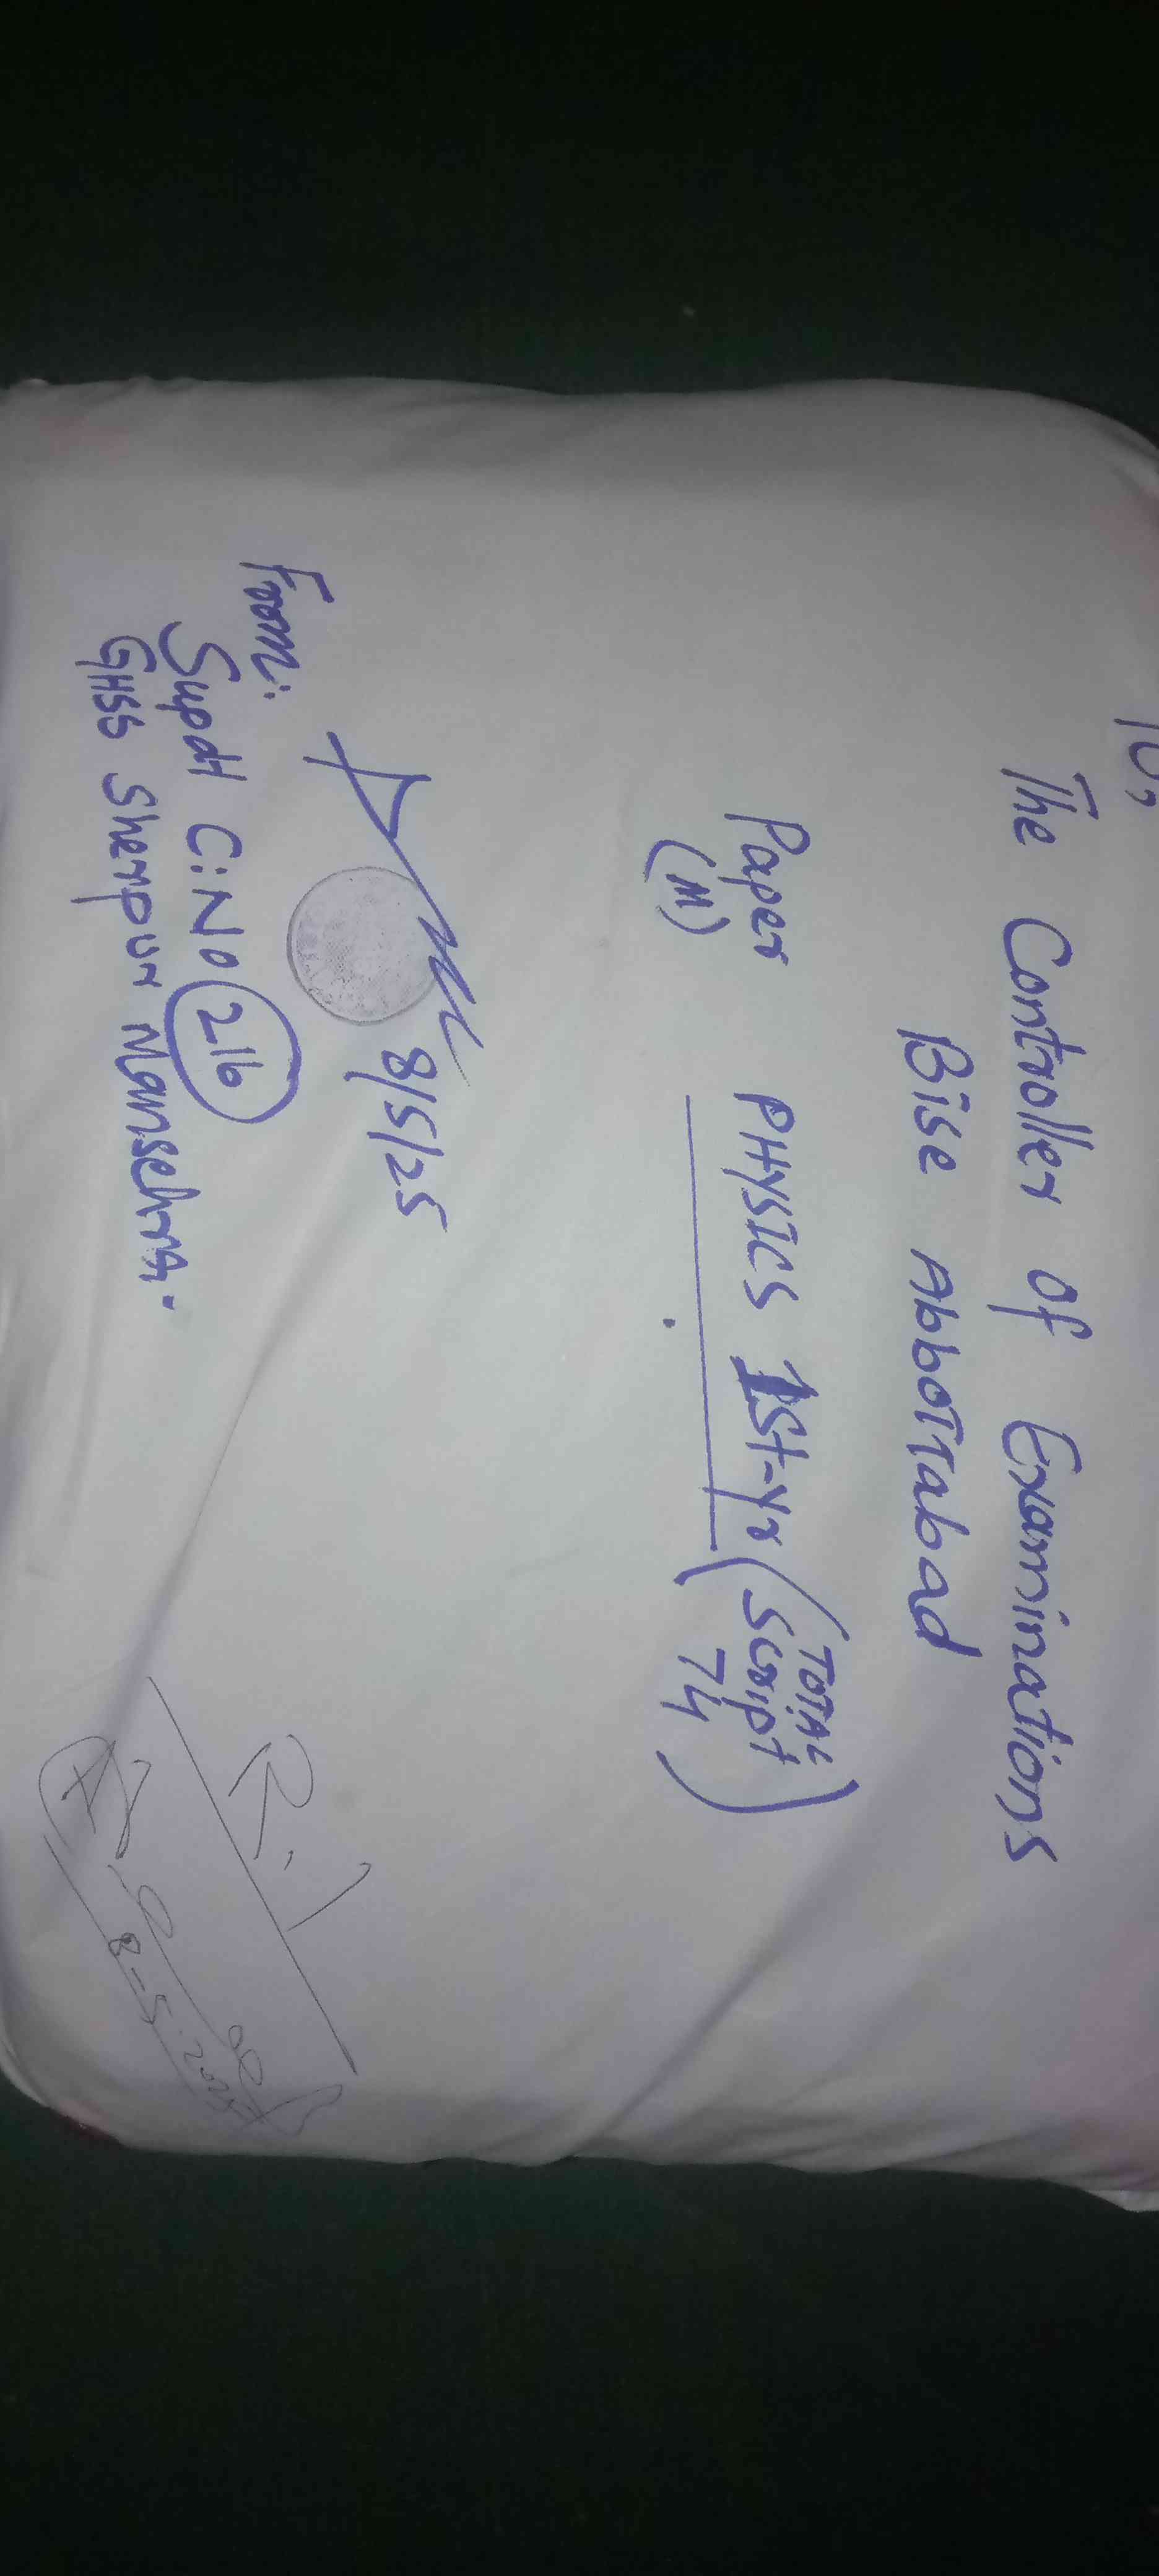 To,
The Controller of Examinations
Bise Abbottabad
Paper PHYSICS 1St-yr (TOTAL Script 74)
(M)
8/5/25
From:
Supdt C:No 216
GHSS Sherpur Mansehra.
R.I
8-5-2025